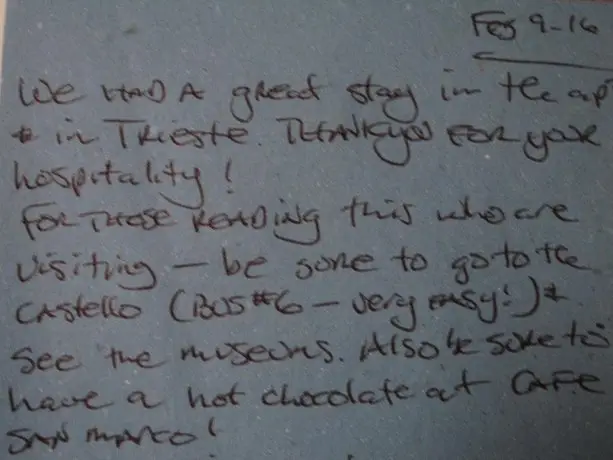 Feb 9-16
We had a great stay in the apt
+ in Trieste. Thank you for your
hospitality!
For those reading this who are
visiting — be sure to go to the
Castello (Bus #6 — very easy!) +
see the museums. Also be sure to
have a hot chocolate at Cafe
San Marco!